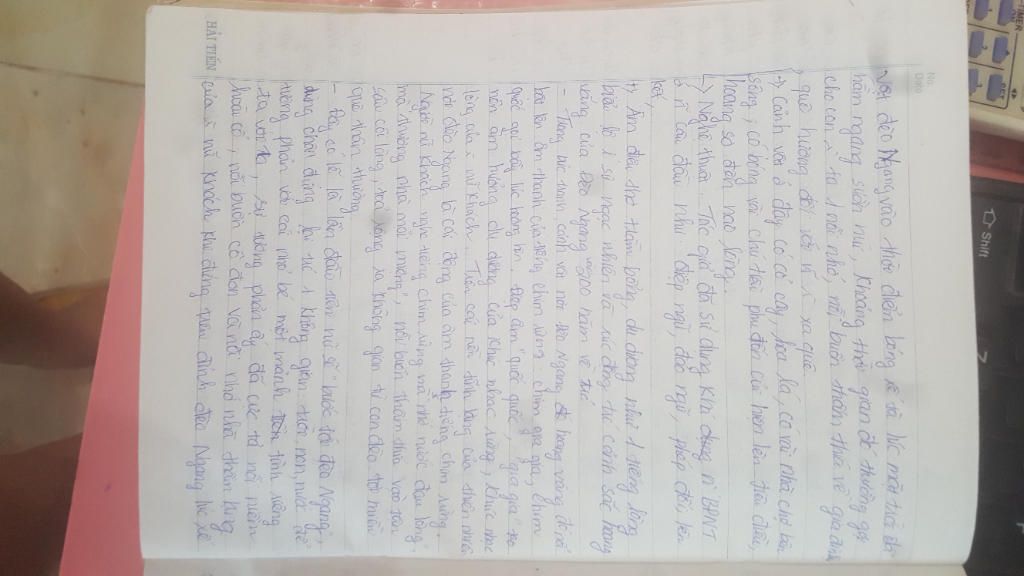 No.
Date
với đèo Ngang vào thời điểm bóng xế tà lúc mặt trời đã
nằm ngang sườn núi, khoảng thời gian đó thường gợi
cho con ta 1 nỗi nhớ, nỗi buồn thấm thía về gia đình
quê hương đối với n xa quê
→ Cảnh vật ở đây có cỏ cây, hoa lá, có vài nhà chợ bên
sông, có bóng vài chú tiều phu đốn củi hiện lên tiêu điều,
hoang sơ đến nao lòng.
↳ Nghệ thuật: Tác giả đã sử dụng khá dụng n BPNT
ở n câu đầu như: điệp ngữ, đảo ngữ, phép đối, liên
kết,
+, Âm điệu thơ trầm bổng, du dương như 1 tiếng lòng
biểu lộ 1 sự ngạc nhiên và xúc động trước cảnh sắc hoang
vắng của Đèo Ngang 200 năm về trước
- Trong bức tranh cảnh vật nơi đèo Ngang hoang vắng đó nổi
bật lên âm thanh của tiếng chim rừng: chim gia gia, chim
quốc gọi bầy lúc hoàng hôn. Điệp âm "quốc quốc", "gia gia" tạo
nên âm hưởng du dương của khúc nhạc rừng, khúc nhạc
lòng của n nữ khách. Trên cái nền tĩnh lặng của thiên nhiên
nơi đèo Ngang là cái động của âm thanh tiếng chim rừng.
Người nữ khách nghe tiếng chim rừng mà nhớ nước đau lòng,
mà thương nhà mỏi miệng, nỗi buồn thấm thía vào tận
sâu cõi lòng, toả rộng ra không gian từ con đèo tới miền
quê thân thương
- Đây có lẽ là lần đầu tiên nữ sĩ bước tới đèo Ngang,
dừng chân đứng lại từ 1 không gian: trời, non, nước để
tương phản với cái nhỏ bé một mảnh tình riêng
ta với ta, sự tương phản ấy đã cực tả nỗi niềm
hoài cổ, nỗi buồn cô đơn và nỗi nhớ nhà thầm lặng
của n nữ khách khi đứng trên đỉnh đèo Ngang lúc xế
HẢI TIẾN
Shift